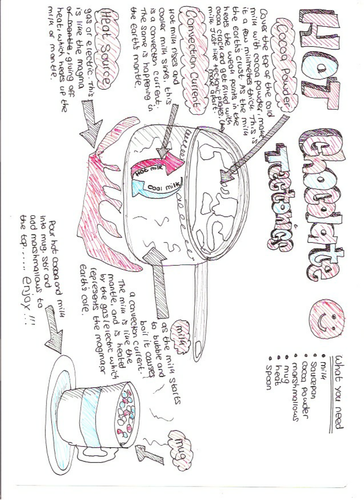 HOT Chocolate Tectonics
What you need
milk
saucepan
cocoa powder
marshmallows
mug
heat
spoon
Cocoa Powder
Cover the top of the cold
milk with cocoa powder, make
it a few millimetres thick. This is
the Earth's crust. As the milk
heats, the weak points in the
cocoa crack and get filled with
milk just like
Convection Current
Hot milk rises and
cooler milk sinks, this is
a convection current.
This is happening in
the Earth's mantle.
Heat Source
gas or electric. This
is like the magma
giving off
heat, which heats up the
milk or mantle.
Hot milk
cool milk
milk
as the milk starts
to bubble and
boil it causes
a convection current.
The milk is like the
mantle, and is heated
by the gas/electric which
represents the magma or
Earth's core.
mug
Pour hot cocoa and milk
into mug, stir and
add marshmallows to
the top.... enjoy!!!